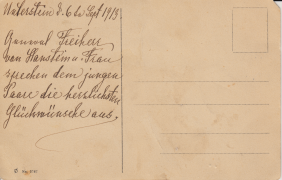 Unterstein d. 6 ten Sept 1913
General Freiherr
von Hanstein u. Frau
sprechen dem jungen
Paare die herzlichsten
Glückwünsche aus.